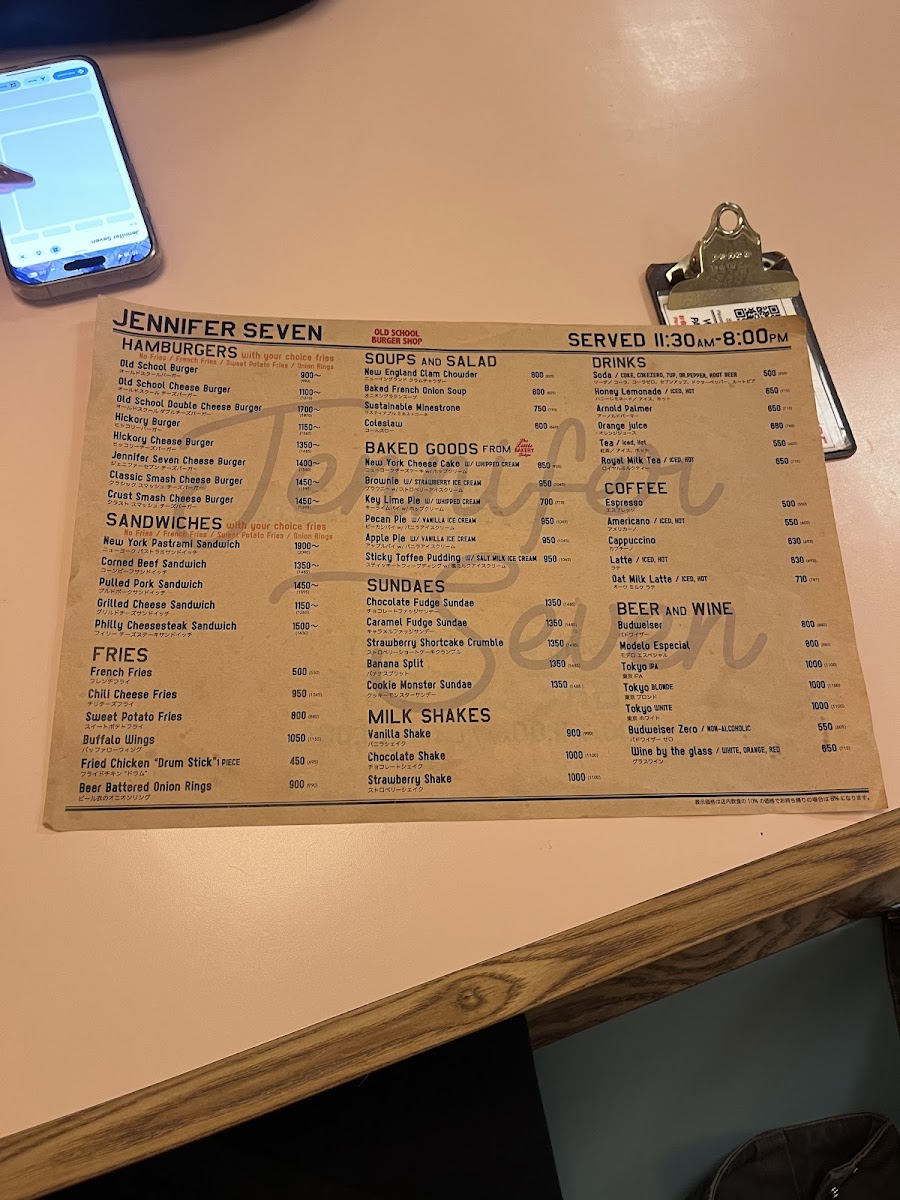 Jennifer Seven
JENNIFER SEVEN
OLD SCHOOL
BURGER SHOP
SERVED 11:30AM-8:00PM
HAMBURGERS with your choice fries
No Fries / French Fries / Sweet Potato Fries / Onion Rings
Old School Burger 900~
オールドスクールバーガー (990)
Old School Cheese Burger 1100~
オールドスクール チーズバーガー (1210)
Old School Double Cheese Burger 1700~
オールドスクール ダブルチーズバーガー
Hickory Burger 1150~
ヒッコリーバーガー
Hickory Cheese Burger 1350~
ヒッコリーチーズバーガー (1485)
Jennifer Seven Cheese Burger 1400~
ジェニファーセブン チーズバーガー (1540)
Classic Smash Cheese Burger 1450~
クラシック スマッシュ チーズバーガー (1595)
Crust Smash Cheese Burger 1450~
クラスト スマッシュ チーズバーガー (1595)
SANDWICHES with your choice fries
No Fries / French Fries / Sweet Potato Fries / Onion Rings
New York Pastrami Sandwich 1900~
ニューヨーク パストラミサンドイッチ (2090)
Corned Beef Sandwich 1350~
コーンビーフサンドイッチ (1485)
Pulled Pork Sandwich 1450~
プルドポークサンドイッチ (1595)
Grilled Cheese Sandwich 1150~
グリルドチーズサンドイッチ
Philly Cheesesteak Sandwich 1500~
フィリー チーズステーキサンドイッチ (1650)
FRIES
French Fries 500 (550)
フレンチフライ
Chili Cheese Fries 950 (1045)
チリチーズフライ
Sweet Potato Fries 800 (880)
スイートポテトフライ
Buffalo Wings 1050 (1155)
バッファローウィング
Fried Chicken "Drum Stick" 1 PIECE 450 (495)
フライドチキン "ドラム"
Beer Battered Onion Rings 900 (990)
ビール衣のオニオンリング
SOUPS AND SALAD
New England Clam Chowder 800
ニューイングランド クラムチャウダー
Baked French Onion Soup 800
オニオングラタンスープ
Sustainable Minestrone 750
サステイナブル ミネストローネ
Coleslaw 600
コールスロー
BAKED GOODS FROM The Little BAKERY Tokyo
New York Cheese Cake W/ WHIPPED CREAM 850
ニューヨークチーズケーキ w/ホップクリーム
Brownie W/ STRAWBERRY ICE CREAM 950 (1045)
ブラウニー w/ストロベリーアイスクリーム
Key Lime Pie W/ WHIPPED CREAM 700
キーライムパイ w/ホップクリーム
Pecan Pie W/ VANILLA ICE CREAM 950 (1045)
ピーカンパイ w/バニラアイスクリーム
Apple Pie W/ VANILLA ICE CREAM 950 (1045)
アップルパイ w/バニラアイスクリーム
Sticky Toffee Pudding W/ SALT MILK ICE CREAM 950 (1045)
スティッキートフィープディング w/塩ミルクアイスクリーム
SUNDAES
Chocolate Fudge Sundae 1350 (1485)
チョコレートファッジサンデー
Caramel Fudge Sundae 1350 (1485)
キャラメルファッジサンデー
Strawberry Shortcake Crumble 1350 (1485)
ストロベリーショートケーキクランブル
Banana Split 1350 (1485)
バナナスプリット
Cookie Monster Sundae 1350 (1485)
クッキーモンスターサンデー
MILK SHAKES
Vanilla Shake 900 (990)
バニラシェイク
Chocolate Shake 1000 (1100)
チョコレートシェイク
Strawberry Shake 1000 (1100)
ストロベリーシェイク
DRINKS
Soda / COKE, COKEZERO, 7UP, DR.PEPPER, ROOT BEER 500
ソーダ / コーラ、コーラゼロ、セブンアップ、ドクターペッパー、ルートビア
Honey Lemonade / ICED, HOT 650
ハニーレモネード / アイス、ホット
Arnold Palmer 650
アーノルドパーマー
Orange juice 680
オレンジジュース
Tea / Iced, Hot 550
紅茶 / アイス、ホット
Royal Milk Tea / ICED, HOT 650
ロイヤルミルクティー
COFFEE
Espresso 500
エスプレッソ
Americano / ICED, HOT 550
アメリカーノ
Cappuccino 630
カプチーノ
Latte / ICED, HOT 630
ラテ
Oat Milk Latte / ICED, HOT 710
オーツ ミルク ラテ
BEER AND WINE
Budweiser 800
バドワイザー
Modelo Especial 800
モデロ エスペシャル
Tokyo IPA 1000 (1100)
東京 IPA
Tokyo BLONDE 1000 (1100)
東京 ブロンド
Tokyo WHITE 1000 (1100)
東京 ホワイト
Budweiser Zero / NON-ALCOHOLIC 550 (605)
バドワイザー ゼロ
Wine by the glass / WHITE, ORANGE, RED 650
グラスワイン
表示価格は店内飲食の 10% の価格でお持ち帰りの場合は 8% になります。